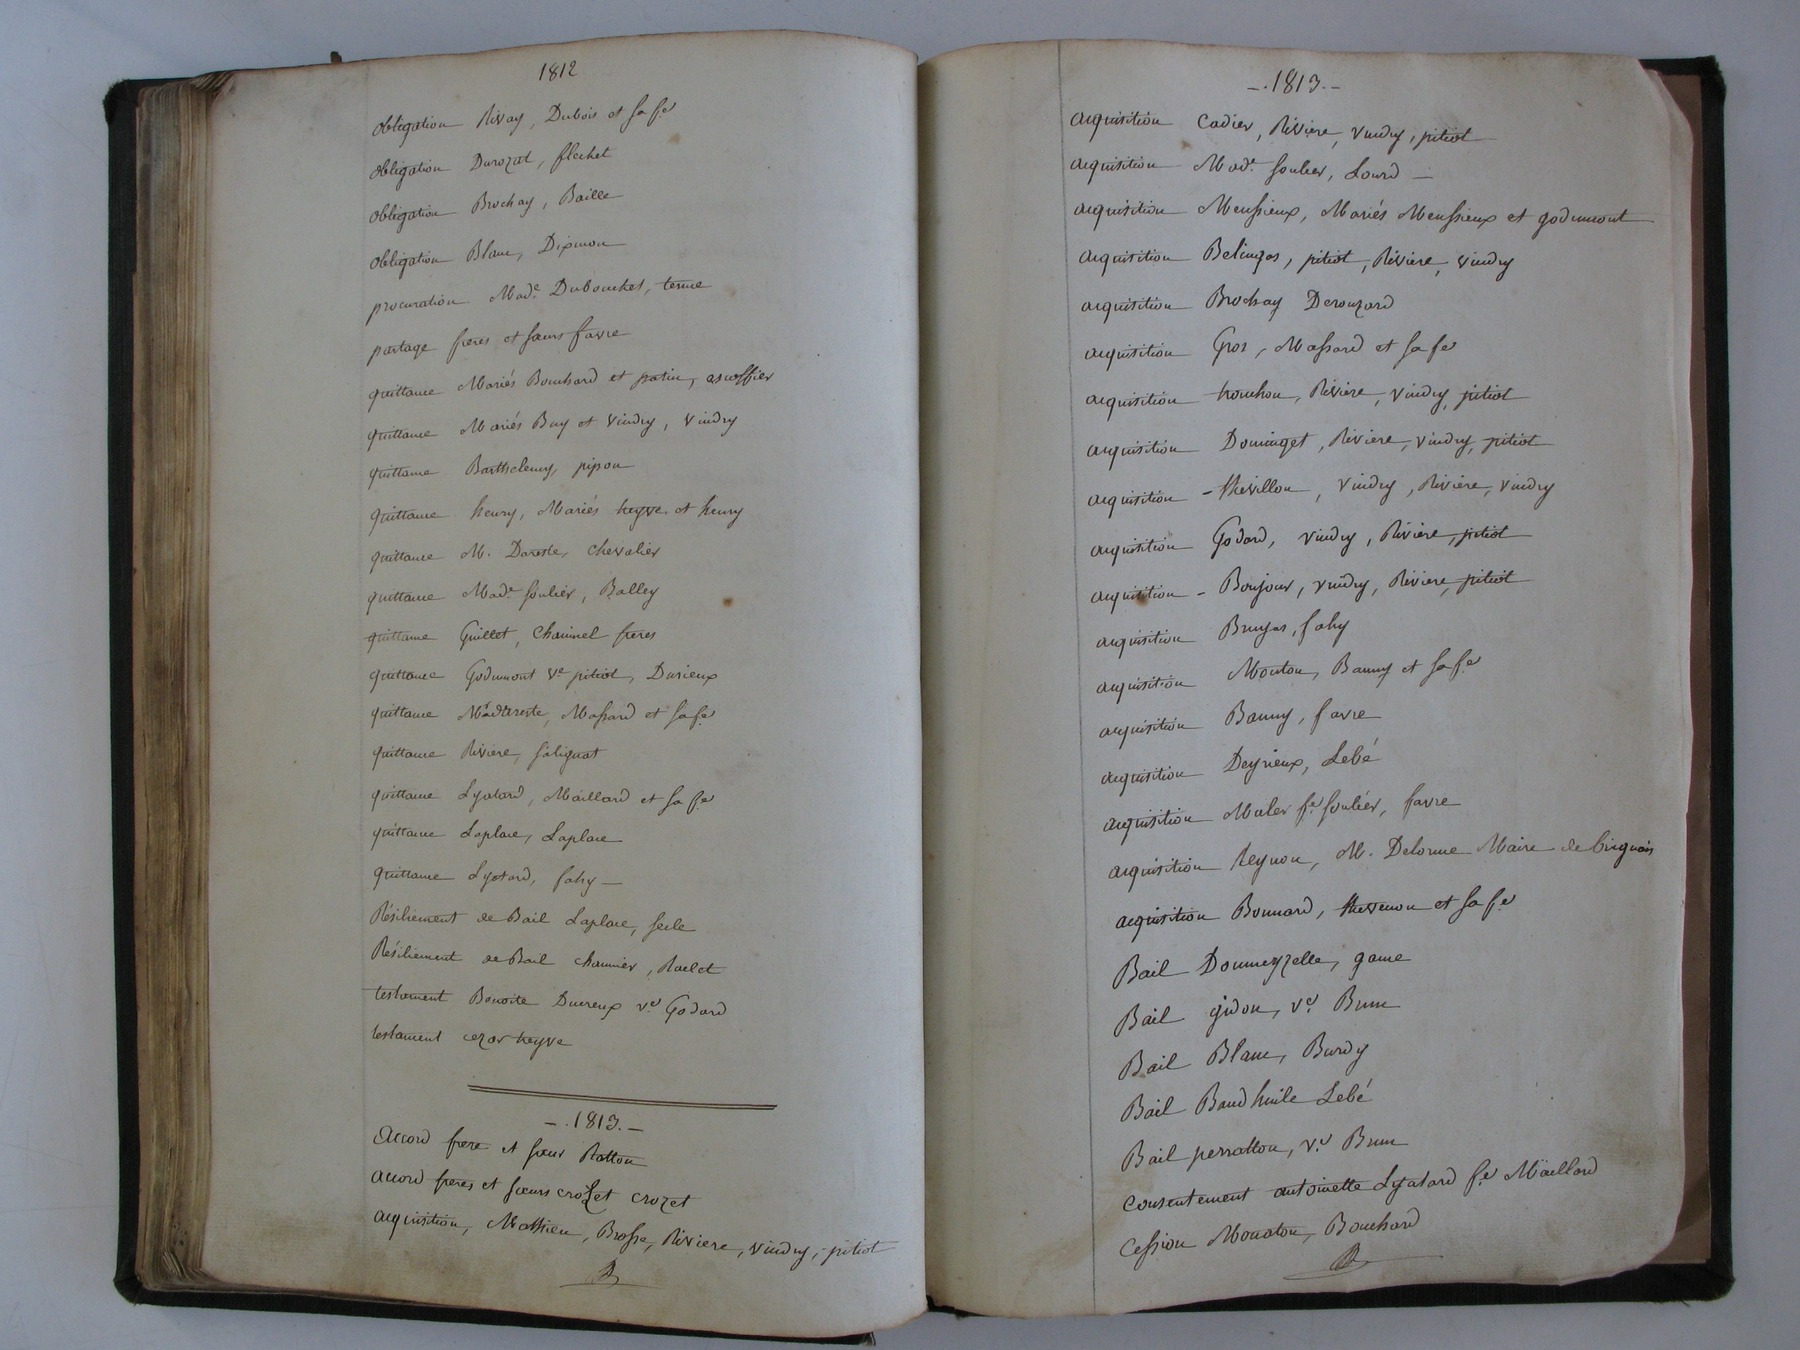 1812
obligation Rivay, Dubois et sa fe
obligation Durozat, flechet
obligation Brochay, Baille
obligation Blanc, Dixmon
procuration Made Dubouchet, terme
partage freres et sœurs favre
quittance Mariés Bouchard et patin, escoffier
quittance Mariés Buy et Vindry, Vindry
quittance Barthelemy, pipon
quittance henry, Mariés heyve et henry
quittance M. Dareste, Chevalier
quittance Made soulier, Balley
quittance Guillet, Chaninel freres
quittance Godumont Ve pitiot, Durieux
quittance Massard et sa fe
quittance Riviere, salignat
quittance Lyatard, Maillard et sa fe
quittance Laplace, Laplace
quittance Lyotard, fahy —
Résiliement de Bail Laplace,
Résiliement de Bail chaumier,
testament Benoite Ducreux ve Godard
testament cezar heyve
— . 1813. —
accord frere et sœur Ratton
accord freres et sœurs crozet crozet
acquisition, Mathieu, Brosse, Riviere, Vindry, pitiot
— . 1813. —
acquisition Cadier, Riviere, Vindry, pitiot
acquisition Made soulier, Lourd —
acquisition Meussieux, Mariés Meussieux et godumont
acquisition Belingos, pitiot, Riviere, vindry
acquisition Brochay Derouzard
acquisition Gros, Massard et sa fe
acquisition trouchon, Riviere, Vindry, pitiot
acquisition Dominget, Riviere, vindry, pitiot
acquisition - thevillon, vindry, Riviere, vindry
acquisition Godard, vindry, Riviere, pitiot
acquisition - Bonjour, vindry, Riviere, pitiot
acquisition Bruyas, fahy
acquisition Mouton, Banny et sa fe
acquisition Banny, favre
acquisition Deyrieux, Lebé
acquisition Muler fe soulier, favre
acquisition Reynon, M. Delorme Maire de brignais
acquisition Bonnard, thevenon et sa fe
Bail Dommeyzelle, game
Bail gidon, ve Brun
Bail Blanc, Burdy
Bail Baudhuile Lebé
Bail perratton, ve Brun
consentement antoinette Lyatard fe Maillard
Cession Monaton, Bouchard